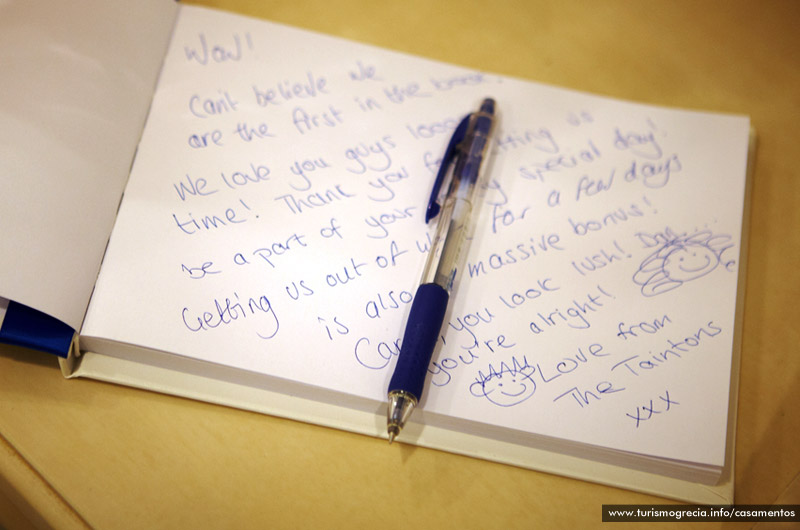 Wow!
Can't believe we
are the first in the book.
We love you guys
time! Thank you for letting us
be a part of your special day!
Getting us out of for a few days
is also massive bonus!
you look lush! Dan....
you're alright!
Love from
The Taintons
xxx
www.turismogrecia.info/casamentos